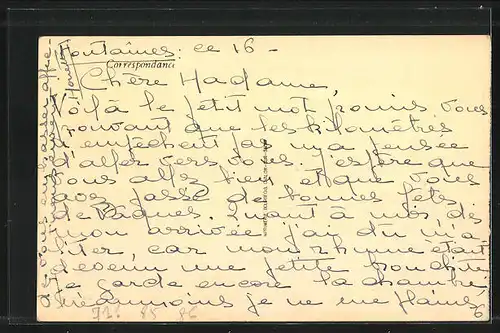 Fontaines. ce 16 -
Correspondance
Chère Madame,
Voilà le petit mot promis vous
prouvant que les kilomètres
n'empêchent pas ma pensée
d'aller vers vous. J'espère que
vous allez bien et que vous
avez passé de bonnes fêtes
de Pâques. Quant à moi, dès
mon arrivée j'ai dû m'a
liter, car mon rhume était
devenu une petite bronchite
Je garde encore la chambre,
néanmoins je ne me plains
Je vous embrasse affec-
tueusement.